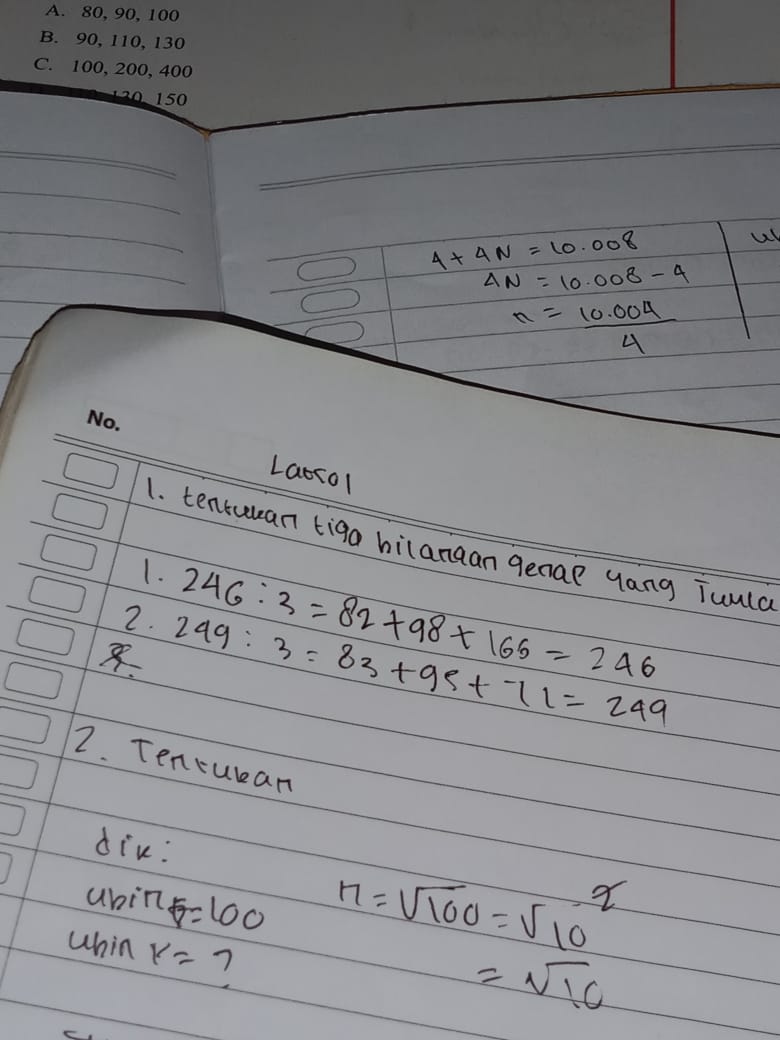 A. 80, 90, 100
B. 90, 110, 130
C. 100, 200, 400
130, 150
4 + 4N = 10.008
4N = 10.008 - 4
n = 10.004
4
No.
Latsol
1. tentukan tiga bilangan genap yang Jumla
1. 246 : 3 = 82 + 98 + 166 = 246
2. 249 : 3 = 83 + 95 + 71 = 249
2. Tentukan
dik:
ubin = 100
n = √100 = √10²
ubin k = ?
= √10